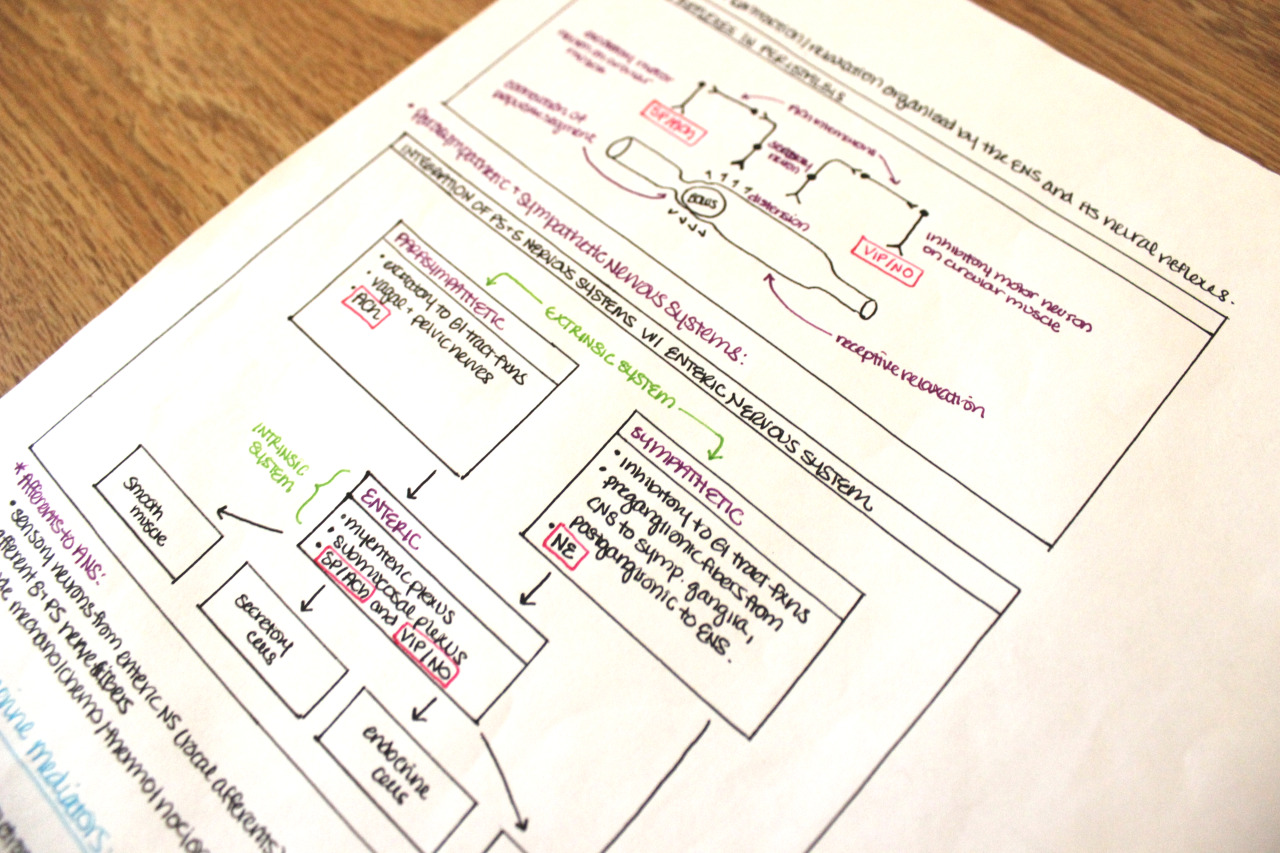 contraction/relaxation organised by the ENS and its neural reflexes.
REFLEXES IN PERISTALSIS
excitatory motor
neuron on circular
muscle
SP/ACh
contraction of
propulsive segment
ACh interneurons
sensory
neuron
BOLUS
distension
VIP/NO
inhibitory motor neuron
on circular muscle
receptive relaxation
• Parasympathetic + Sympathetic Nervous Systems:
INTEGRATION OF PS + S NERVOUS SYSTEMS W/ ENTERIC NERVOUS SYSTEM
PARASYMPATHETIC
• excitatory to GI tract fxns
• vagal + pelvic nerves
• ACh
EXTRINSIC SYSTEM
SYMPATHETIC
• inhibitory to GI tract fxns
• preganglionic fibers from
CNS to symp. ganglia,
postganglionic to ENS.
• NE
INTRINSIC
SYSTEM
ENTERIC
• myenteric plexus
• submucosal plexus
• SP/ACh and VIP/NO
smooth
muscle
secretory
cells
endocrine
cells
* Afferents to ANS:
• sensory neurons from enteric NS (local afferents)
afferent S + PS nerve fibers
mechano/chemo/thermo/nocio
mediators